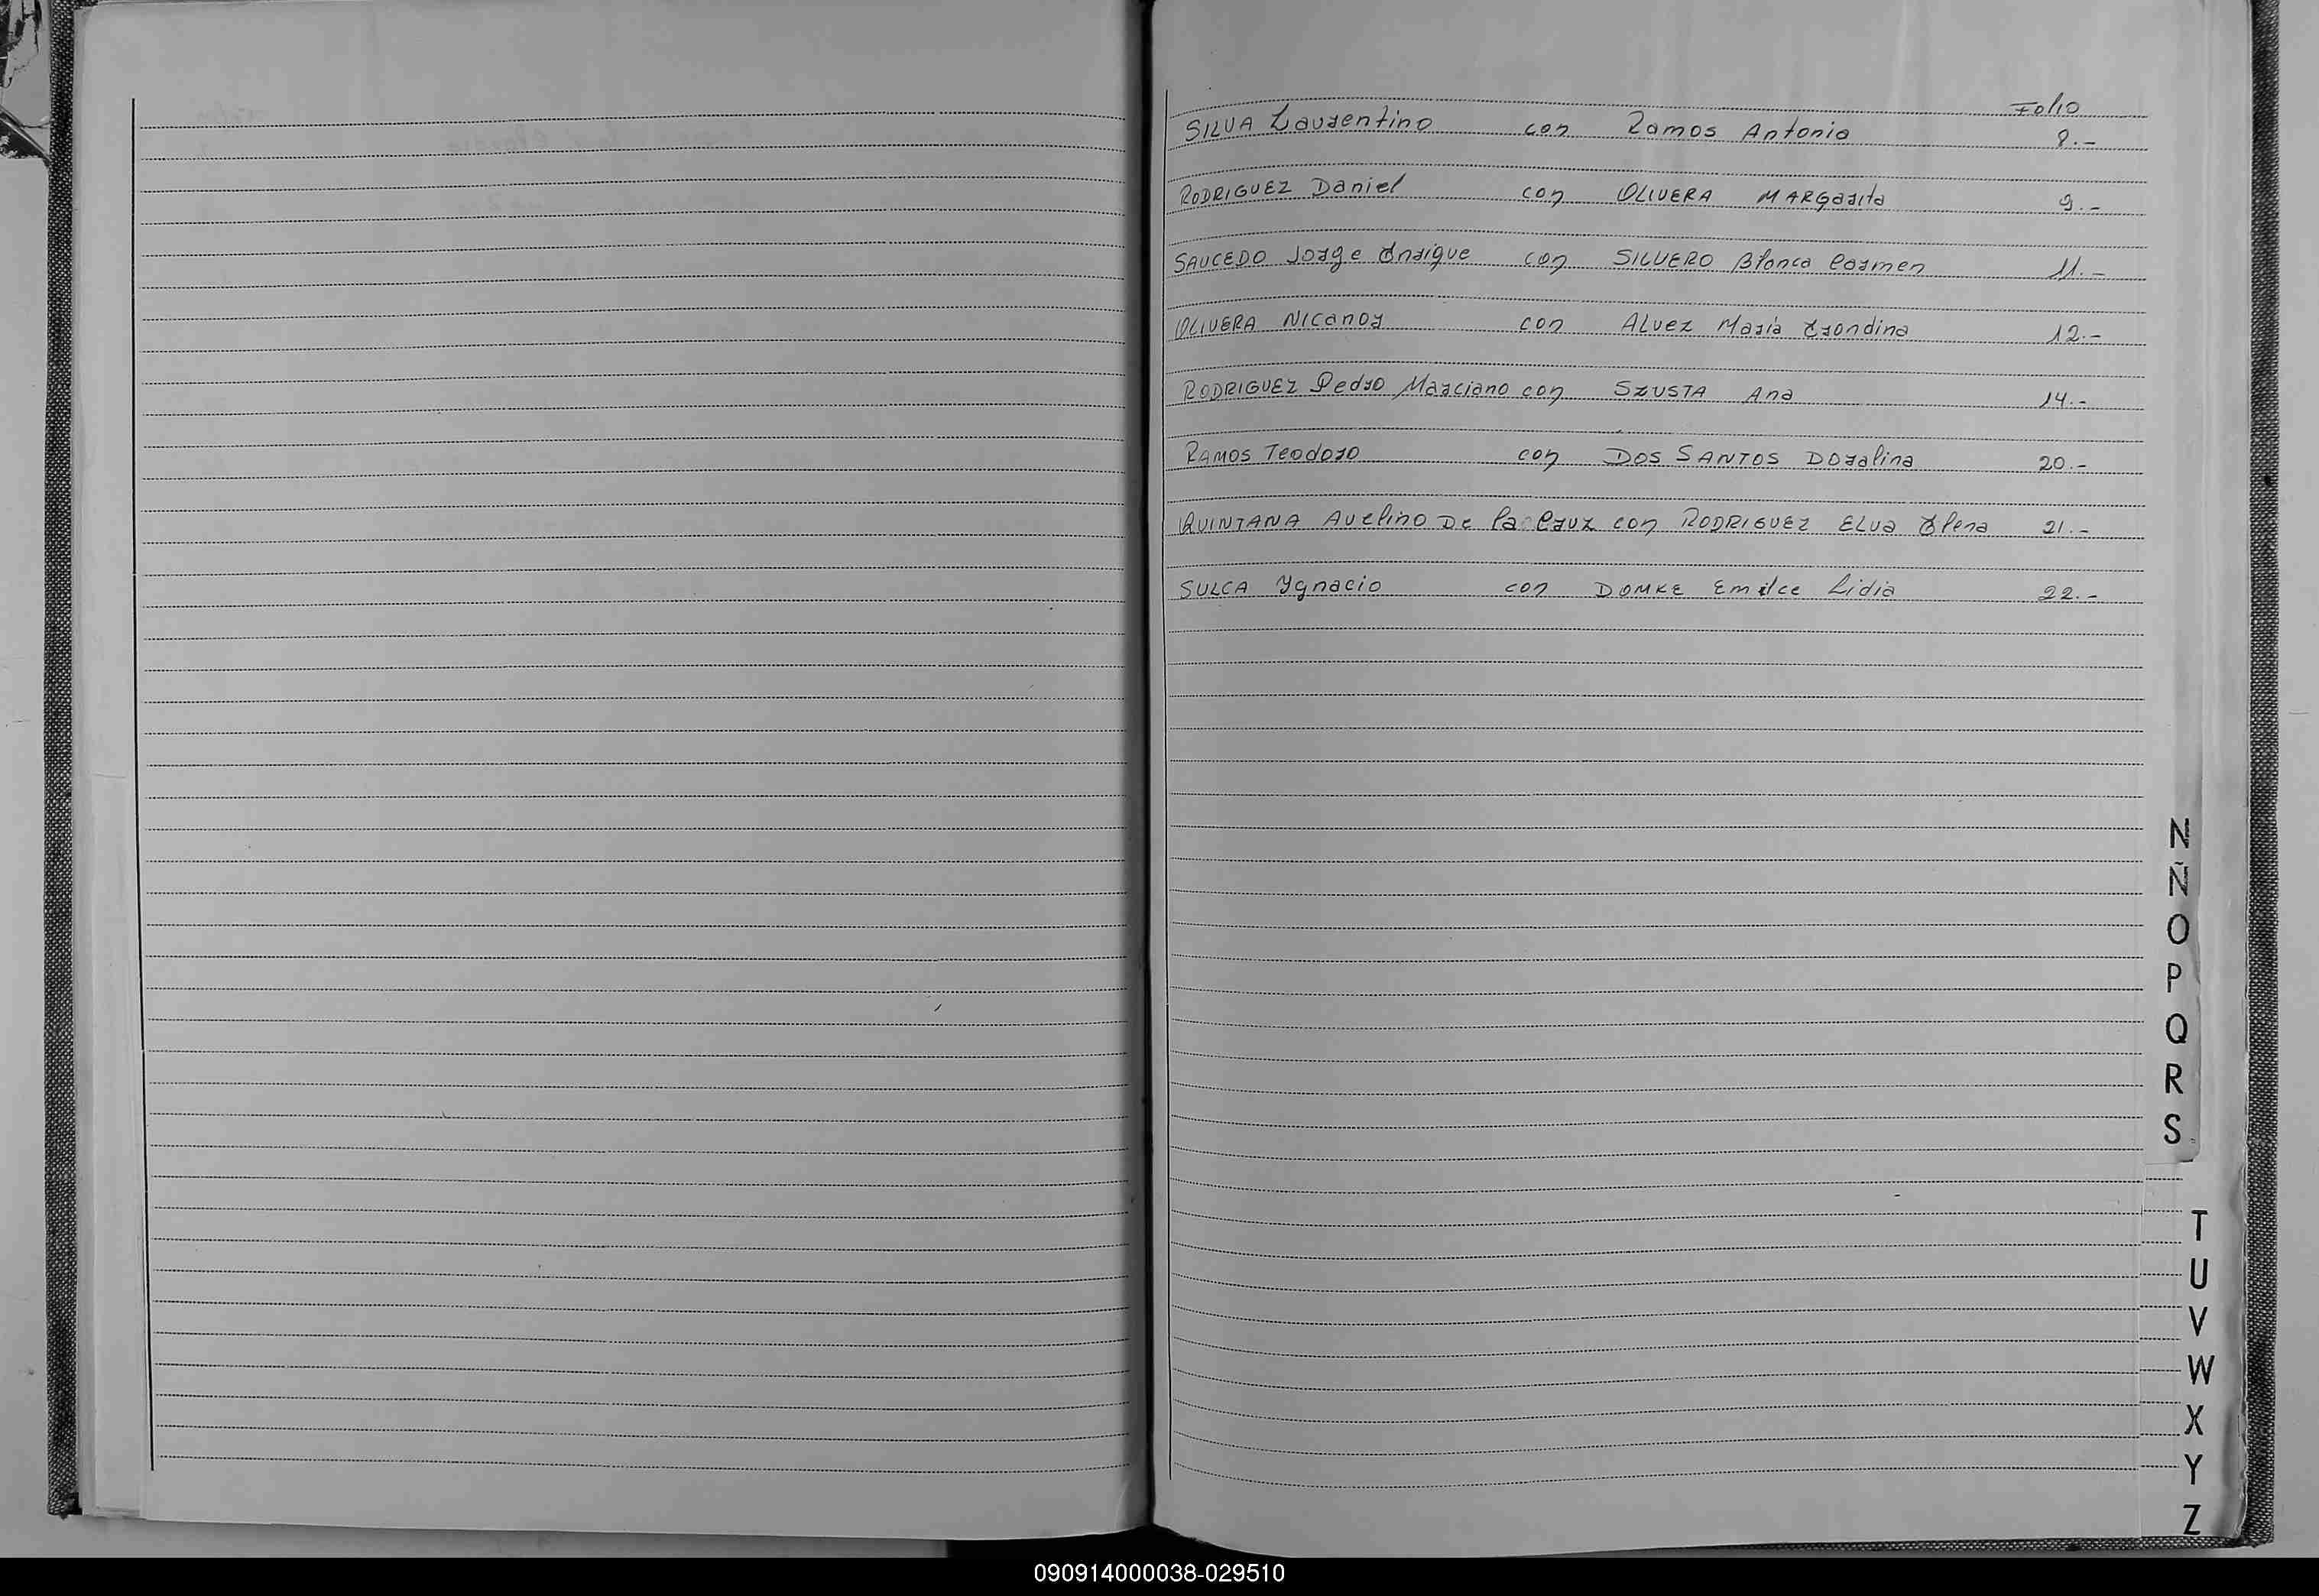 Folio
SILVA Laurentino con Ramos Antonia 8.-
RODRIGUEZ Daniel con OLIVERA MARGarita 9.-
SAUCEDO Jorge Enrique con SILVERO Blanca Carmen 11.-
OLIVERA Nicanor con Alvez María Erondina 12.-
RODRIGUEZ Pedro Marciano con SZUSTA Ana 14.-
Ramos Teodoro con Dos SANTOS Doralina 20.-
QUINTANA Avelino De la Cruz con RODRIGUEZ Elva Elena 21.-
SULCA Ygnacio con DOMKE Emilce Lidia 22.-
N
Ñ
O
P
Q
R
S
T
U
V
W
X
Y
Z
090914000038-029510